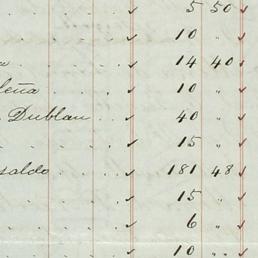 . . . ✓ 5 50 ✓
. . . ✓ 10 " ✓
. . . ✓ 14 40 ✓
leña . . ✓ 10 " ✓
Dublan . . ✓ 40 " ✓
. . . ✓ 15 " ✓
saldo . . ✓ 181 48 ✓
. . . ✓ 15 " ✓
. . . ✓ 6 " ✓
. . . ✓ 10 " ✓